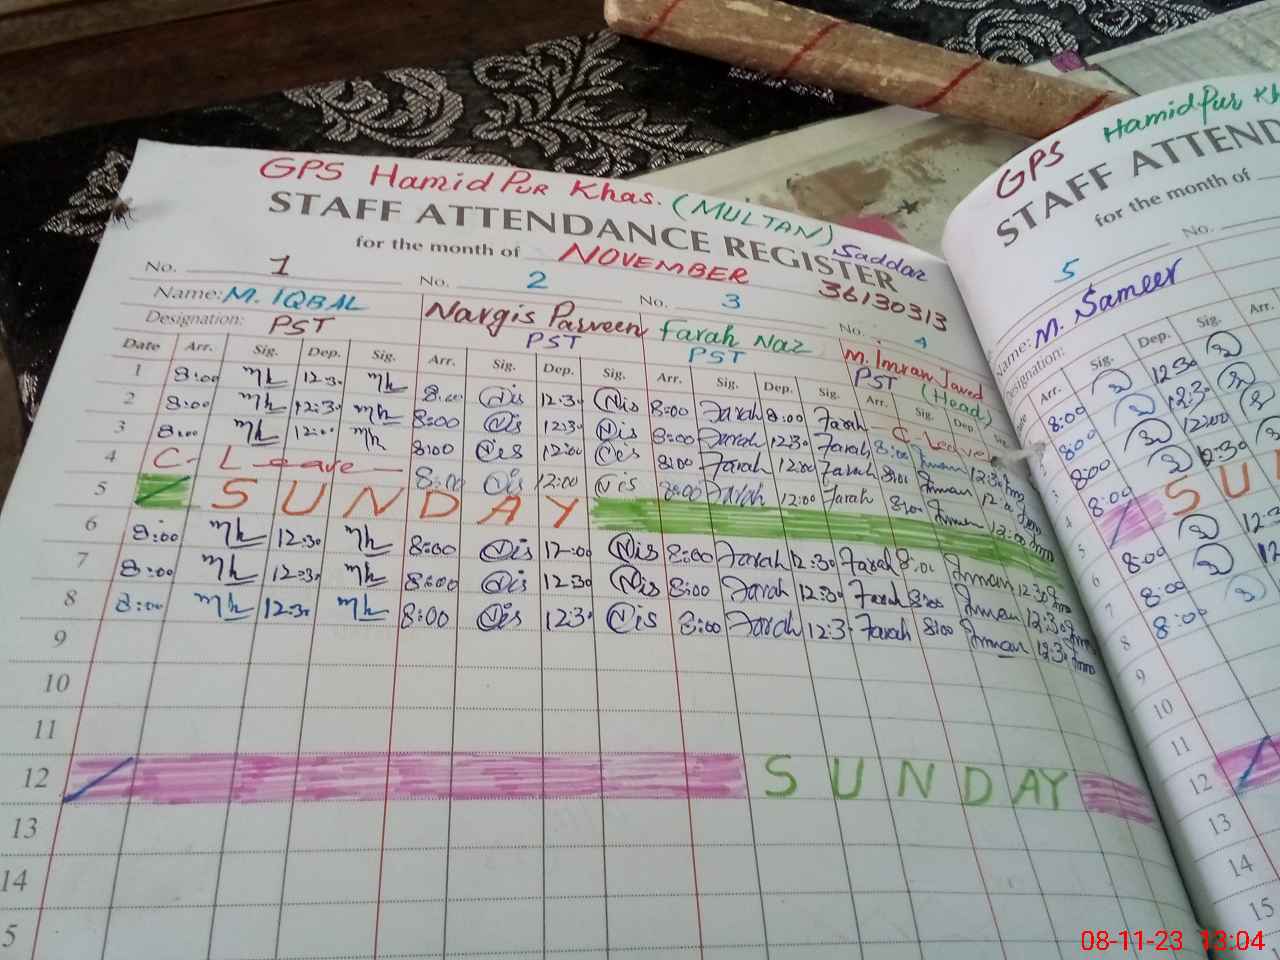 GPS Hamid Pur Khas. (MULTAN) Saddar
STAFF ATTENDANCE REGISTER
for the month of NOVEMBER 36130313
No. 1 No. 2 No. 3 No. 4
Name: M. IQBAL Nargis Parveen Farah Naz M. Imran Javed (Head)
Designation: PST PST PST PST
Date Arr. Sig. Dep. Sig. Arr. Sig. Dep. Sig. Arr. Sig. Dep. Sig. Arr. Sig. Dep. Sig.
1 8:00 mh 12:30 mh 8:00 Nis 12:30 Nis 8:00 Farah 8:00 Farah C. Leave
2 8:00 mh 12:30 mh 8:00 Nis 12:30 Nis 8:00 Farah 12:30 Farah 8:00 Imran 12:30
3 8:00 mh 12:00 mh 8:00 Nis 12:00 Nis 8:00 Farah 12:00 Farah 8:00 Imran 12:00
4 C. Leave 8:00 Nis 12:00 Nis 8:00 Farah 12:00 Farah 8:00 Imran 12:00
5 SUNDAY
6 8:00 mh 12:30 mh 8:00 Nis 12:00 Nis 8:00 Farah 12:30 Farah 8:00 Imran 12:30
7 8:00 mh 12:30 mh 8:00 Nis 12:30 Nis 8:00 Farah 12:30 Farah 8:00 Imran 12:30
8 8:00 mh 12:30 mh 8:00 Nis 12:30 Nis 8:00 Farah 12:3 Farah 8:00 Imran 12:30
9
10
11
12 SUNDAY
13
14
5
GPS Hamid Pur
STAFF ATTEND
for the month of
5 No.
Name: M. Sameer
Designation:
Arr. Sig. Dep. Sig. Arr.
8:00 12:30
8:00 12:30
3 8:00 12:00
4 8:00 12:30
5 SU
6 8:00 12:3
7 8:00 12
8 8:00
9
10
11
12
13
14
15
08-11-23 13:04